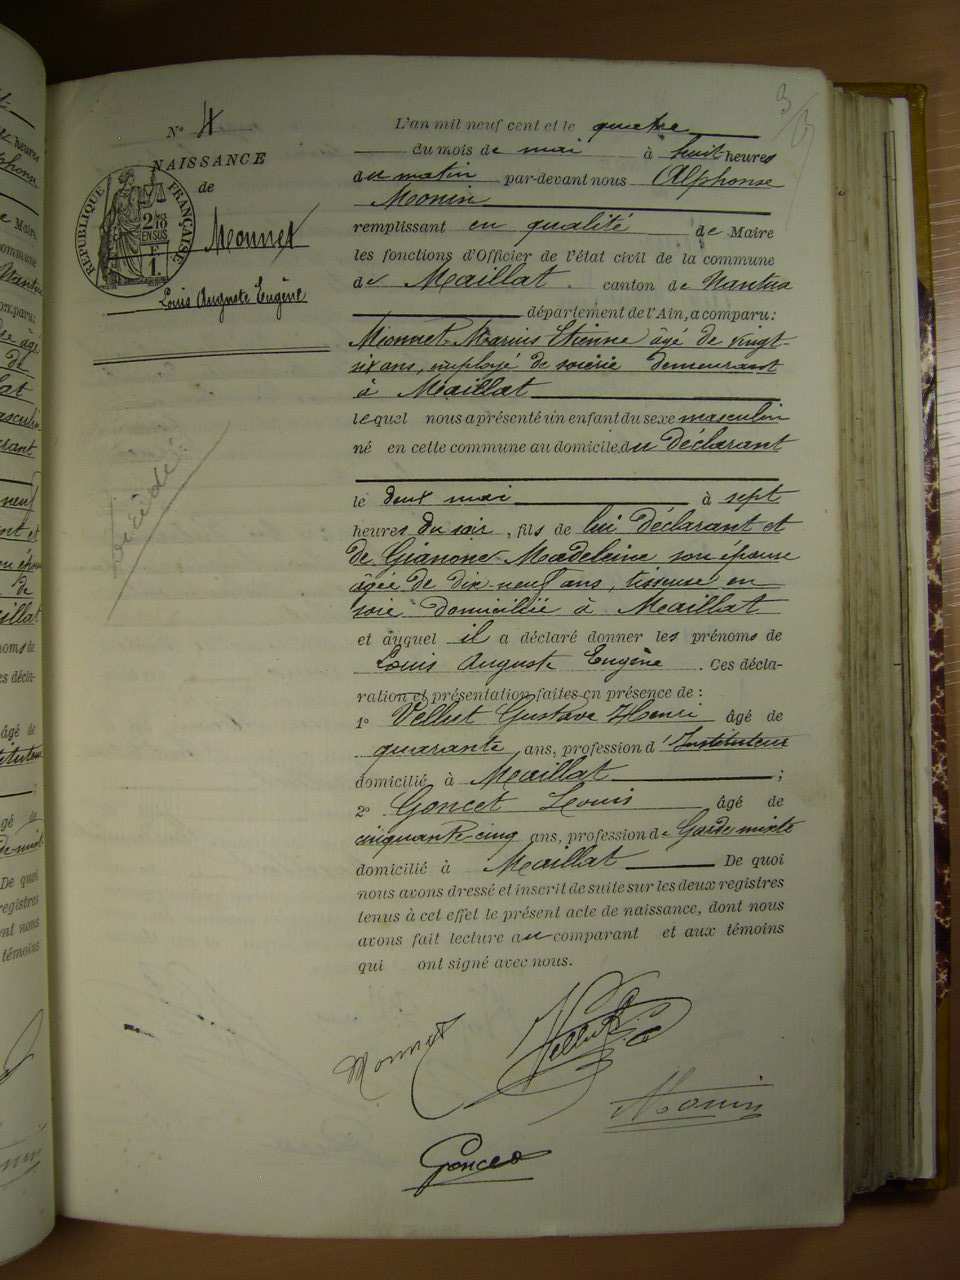 3
N° 4
NAISSANCE
de
RÉPUBLIQUE FRANÇAISE
2/10 EN SUS
F.
1.
Monnet
Louis Auguste Eugène
Décédé
L'an mil neuf cent et le quatre
du mois de mai à huit heures
du matin par-devant nous Alphonse
Monin
remplissant en qualité de Maire
les fonctions d'Officier de l'état civil de la commune
de Maillat canton de Nantua
département de l'Ain, a comparu:
Monnet Marius Etienne âgé de vingt-
six ans, employé de soierie demeurant
à Maillat
lequel nous a présenté un enfant du sexe masculin
né en cette commune au domicile du Déclarant
le deux mai à sept
heures du soir, fils de lui Déclarant et
de Gianone Madeleine son épouse
âgée de dix-neuf ans, tisseuse en
soie domiciliée à Maillat
et auquel il a déclaré donner les prénoms de
Louis Auguste Eugène. Ces décla-
ration et présentation faites en présence de:
1° Velluet Gustave Henri âgé de
quarante ans, profession d'Instituteur
domicilié à Maillat ;
2° Goncet Louis âgé de
cinquante-cinq ans, profession de Garde mixte
domicilié à Maillat De quoi
nous avons dressé et inscrit de suite sur les deux registres
tenus à cet effet le présent acte de naissance, dont nous
avons fait lecture au comparant et aux témoins
qui ont signé avec nous.
Monnet
Velluet
Monin
Goncet